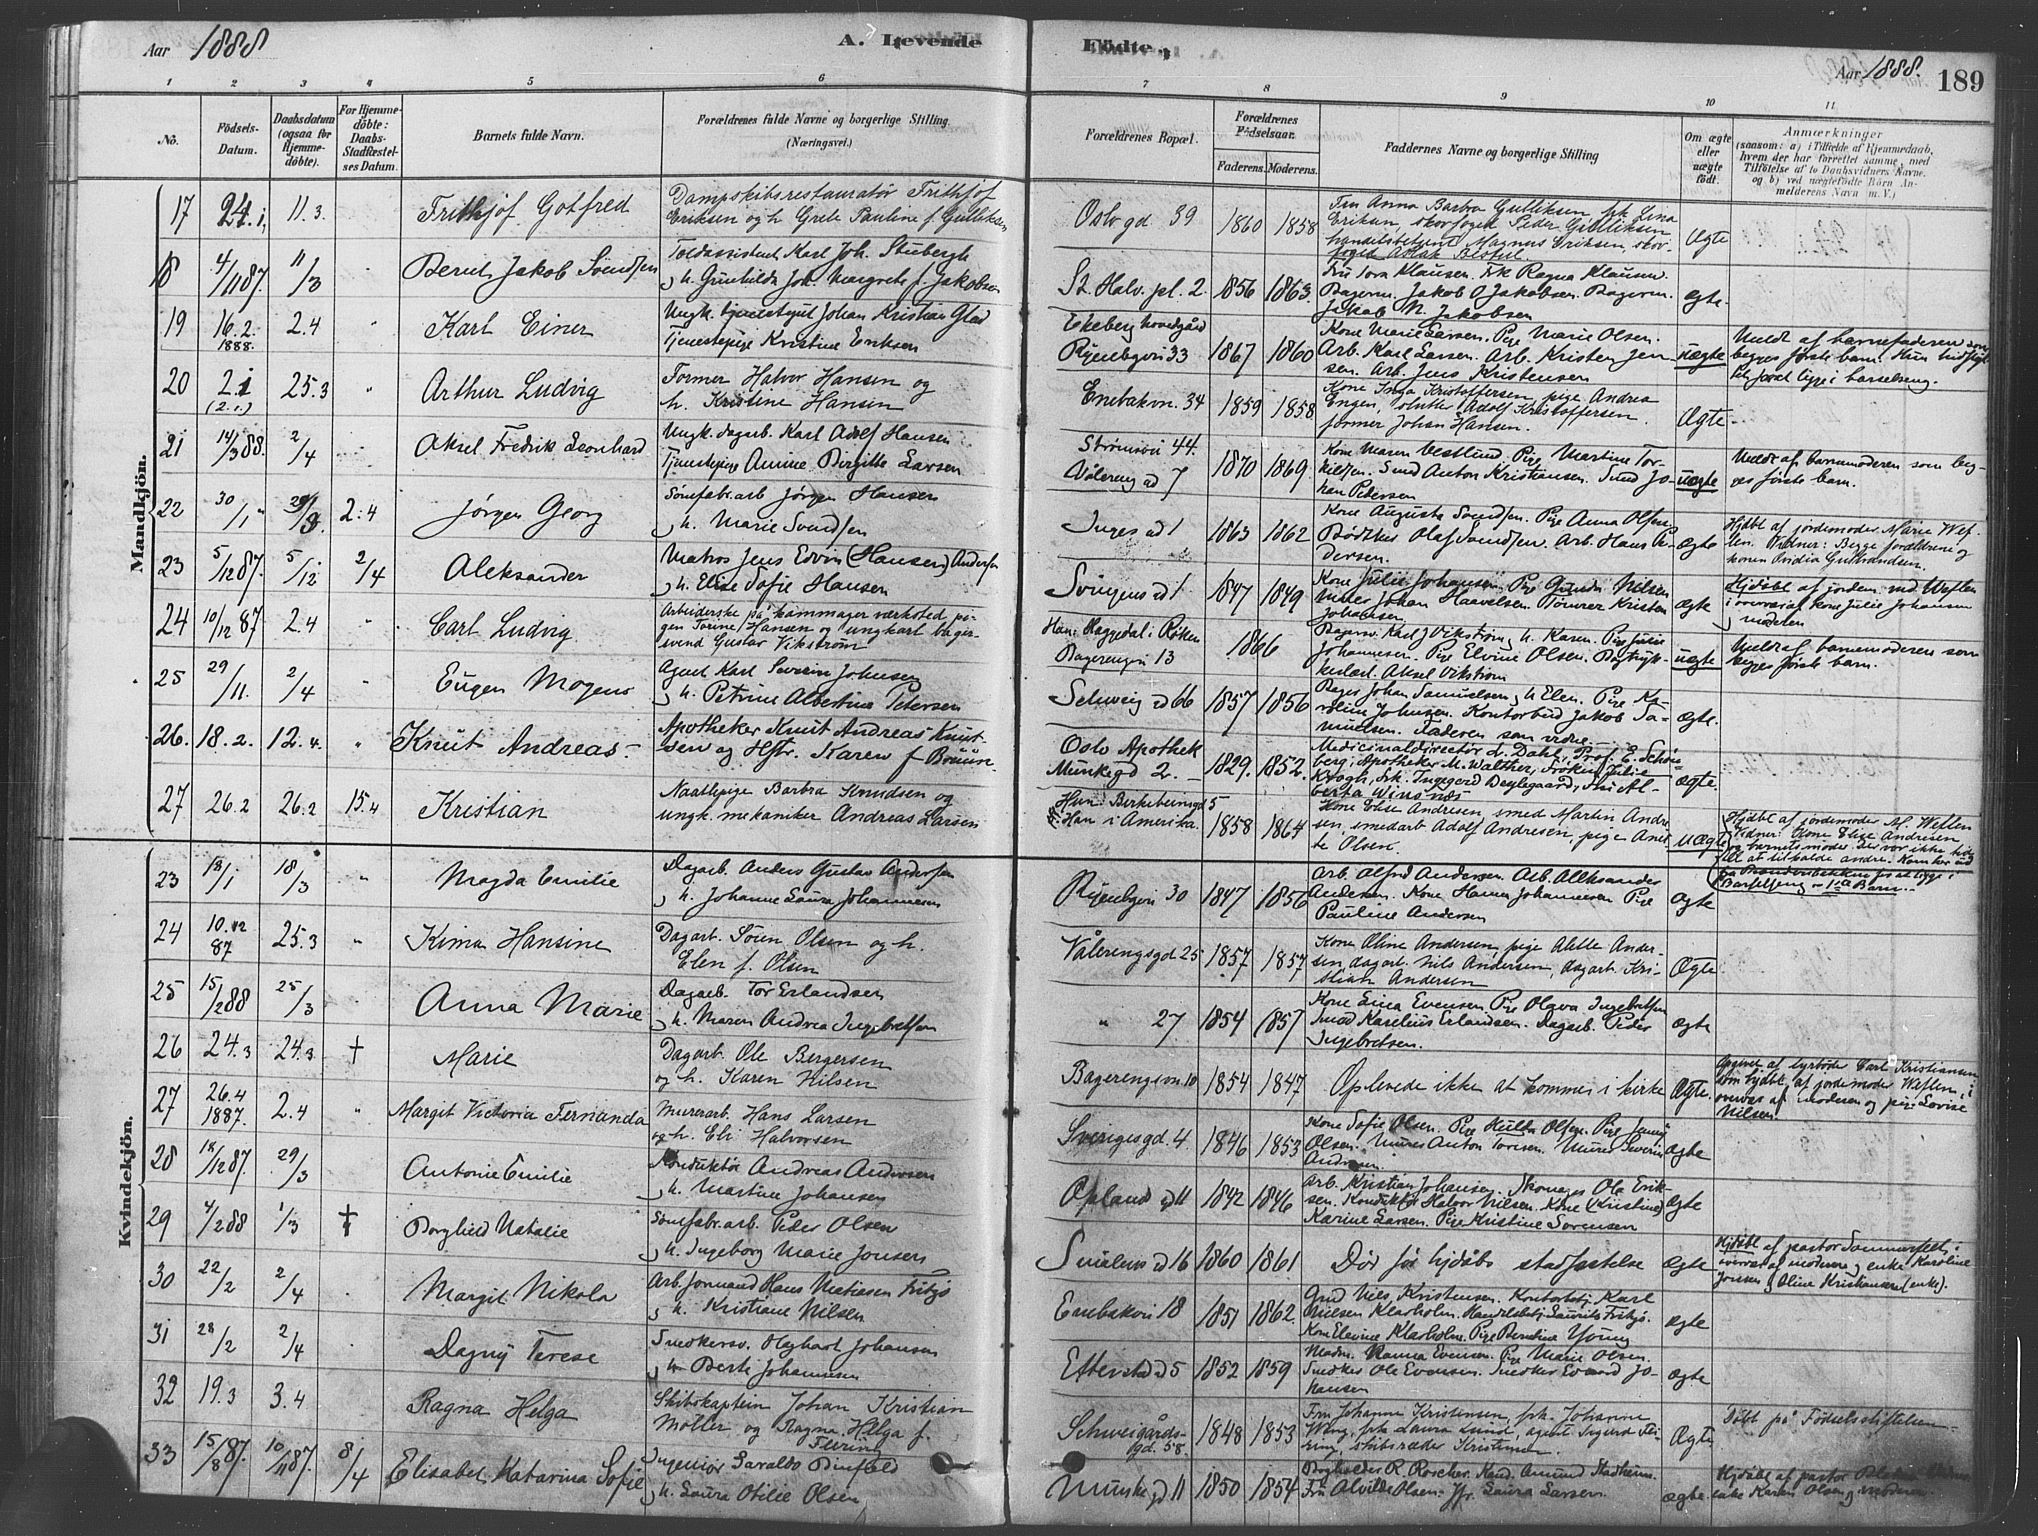 Aar 1888
A. Levende
Födte.
Aar 1888.
189
1 2 3 4 5 6 7 8 9 10 11
No.
Födsels-
Datum.
Daabsdatum
(ogsaa for
Hjemme-
döbte).
For Hjemme-
döbte:
Daabs-
Stadfæstel-
ses Datum.
Barnets fulde Navn.
Forældrenes fulde Navne og borgerlige Stilling
(Næringsvei.)
Forældrenes Bopæl.
Forældrenes
Födselsaar.
Faderens. Moderens.
Faddernes Navne og borgerlige Stilling
Om ægte
eller
uægte
födt.
Anmærkninger
(saasom: a) i Tilfælde af Hjemmedaab,
hvem der har forrettet samme, med
Tilföielse af to Daabsvidners Navne.
og b) ved uægtefödte Börn An-
melderens Navn m. V.)
Mandkjön.
17 24.1. 11.3. Frithjof Gotfred
Dampskibsrestauratør Frithjof
Eriksen og h. Grete Pauline f. Gulliksen
Oslogd 39 1860 1858
Fru Anna Barbra Gulliksen, frk Lina
Eriksen, skovfoged Peder Gulliksen
handelsbetjent Magnus Eriksen, skov-
foged Aslak
Ægte
18 4/11 87. 11/3 Bernt Jakob Svendsen
Toldassistent Karl Joh. Stubergh
og h. Gunhilda Joh. Margrete f. Jakobsen
St. Halv. pl. 2. 1856 1863.
Fru Tora Klausen. Frk Ragna Klausen.
Bagerm. Jakob O Jakobsen. Bagerm.
Jakob N. Jakobsen
ægte.
19 16.2. 1888. 2.4 " Karl Einer
Ungk. tjenestegut Johan Kristian Glad
Tjenestepige Kristine Eriksen
Ekeberg hovedgård
Ryenbgvei 33 1867 1860
Kone Marie Larsen. Pige Marie Olsen.
Arb. Karl Larsen. Arb. Kristen Jen-
sen. Arb. Jens Kristensen
uægte
Meldt af barnefaderen som
begges første barn.
20 2.1 (2.1.) 25.3 " Arthur Ludvig
Former Halvor Hansen og
h. Kristine Hansen
Enebakvn. 34 1859 1858
Kone Inga Kristoffersen, pige Andrea
Engen, slutter Adolf Kristoffersen
former Johan Hansen.
Ægte
21 14/3 88. 2/4 Aksel Fredrik Leonhard
Ungk. dagarb. Karl Adolf Hansen
Tjenestepige Amine Birgitte Larsen
Strømsvei 44.
Vålereng gd 7 1870 1869.
Kone Maren Vestlund Pige Martine Tor-
kilsen. Smed Anton Kristiansen. Smed Jo-
han Petersen
uægte
Meldt af barnemoderen som beg-
ges første barn.
22 30/1 29/3. 2.4 Jørgen Georg
Sømfabr.arb Jørgen Hansen
og h. Marie Svendsen
Inges gd 1 1863 1862
Kone Augusta Svendsen. Pige Anna Olsen
Bødtker Olaf Svendsen. Arb. Hans Pe-
dersen.
ægte
Hjdøbt af jordemoder Marie Wef-
len. Vidner: Begge forældrene og
konen Gulbrandsen.
23 5/12 87. 5/12 2/4 Aleksander
Matros Jens Edvin (Hansen) Andersen
og h. Elise Sofie Hansen
Sverigesgd 1 1847 1849
Kone Julie Johansen Pige Gunda Nilsen
Murer Johan Haavelsen. Tømrer Kristen
Johansen
ægte
Hjdøbt af jordem. md Weflen
i overvær af kone Julie Johansen
og moderen
24 10/12 87 2.4 " Carl Ludvig
Arbeiderske på kammager værksted pi-
gen Torine Hansen og ungkarl bager-
svend Gustav Vikstrøm
Han: Haggedal i Røken
Bagerengvei 13 1866
Bagersv. Karl J Vikstrøm og h. Karen. Pige Julie
Johannesen. Pige Elvine Olsen.
Aksel Vikstrøm
uægte
Meldt af barnemoderen som
begges første barn.
25 29/11. 2/4 " Eugen Mogens
Agent Karl Severin Johnsen
og h. Petrine Albertine Petersen
Schweig gd 66 1857 1856
Bager Johan Samuelsen og h Elen. Pige Ka-
roline Johnsen. Kontorbud Jakob Sa-
muelsen. Faderen som vidne.
ægte.
26. 18.2. 12.4. " Knut Andreas
Apotheker Knut Andreas Knut-
sen og Hstr. Karen f Bruun.
Oslo Apothek
Munkegd 2. 1829. 1852.
Medicinaldirectør L. Dahl, Prof. E. Schøn-
berg, Apotheker M. Walther, Frøken Julie
Krogh, frk. Ingegerd Deglegaard, fru Al-
berta Winsnæs
ægte.
27 26.2 26.2 15.4 Kristian
Naatlepige Barbra Knudsen og
ungk. mekaniker Andreas Larsen
Hun: Birkebeinergd 5
Han i Amerika. 1858 1864
Kone Elise Andresen, smed Martin Andre-
sen, smedarb Adolf Andresen, pige Anet-
te Olsen.
uægte
Hjdøbt af jordemoder M. Weflen
Vidner: Kone Elise Andresen
og barnets moder. Der var ikke tid
til at tilkalde andre. Kom her ud
fra for at ligge i
Barselseng. 1ste Barn.
Kvindekjön.
23 18/1 18/3 " Magda Emilie
Dagarb. Anders Gustav Andersen
og h. Johanne Laura Johannesen
Ryenbgvei 30 1847 1856
Arb. Alfred Andersen. Arb. Alleksander
Andersen. Kone Hanna Johannesen Pige
Pauline Andersen
ægte
24 10.12 87 25.3 " Kima Hansine
Dagarb. Søren Olsen og h.
Elen f. Olsen
Vålerengsgd 25 1857 1857
Kone Oline Andersen, pige Alette Ander-
sen, dagarb. Nils Andersen, dagarb. Kri-
stian Andersen
Ægte
25 15/2 88 25/3 Anna Marie
Dagarb. Tor Erlandsen
og h. Maren Andrea Ingebretsen
" 27 1854 1857
Kone Lina Evensen Pige Olava Ingebretsen
Smed Karelius Erlandsen. Dagarb. Peder
Ingebretsen.
ægte
26 24.3 24.3 † Marie
Dagarb. Ole Bergersen
og h. Karen Nilsen
Bagerengvn 10 1854 1847
Oplevede ikke at komme i kirke
Ægte.
Opgivet af lysstøber Carl Kristiansen
som hjdøbt af jordemoder Weflen i
overvær af moderen og pige Lovise
Nilsen.
27 26.4 1887. 2.4 " Margit Victoria Fernanda
Murerarb. Hans Larsen
og h. Eli Halvorsen
Sverigesgd. 4 1846 1853
Kone Sofie Olsen. Pige Hulta Olsen. Pige Jenny
Olsen. Murer Anton Toresen. Murer Severin
Andersen.
ægte
28 18/12 87 29/3 Antonie Emilie
Konduktør Andreas Andersen
og h. Martine Johansen
Oplandsgd 11 1842 1846
Arb. Kristian Johansen. Skomager Ole Erik-
sen. Konduktør Halvor Nilsen. Kone (Kristine)
Karine Larsen. Pige Kristine Sørensen
ægte
29 4/2 88 1/3 † Borghild Natalie
Sømfabr.arb. Peder Olsen
og h. Ingeborg Marie Jonsen
Smålensgd 16 1860 1861
Død før hjdåbs stadfæstelse
Ægte
Hjdøbt af pastor Sommerfelt i
overvær af moderen og enke Karoline
Jonsen og Oline Kristiansen (enke).
30 22/2 2/4 Margit Nikola
Arb. formand Hans Matiesen Fritjø
og h. Kristiane Nilsen
Enebakvei 18 1851 1862.
Grd Nils Kristensen. Kontorbetj. Karl
Nilsen Klarholm. Handelsbetj. Laurits Fritjø.
Kone Elevine Klarholm. Pige Berntine Young
ægte
31 28/2 2/4 Dagny Terese
Snedkersv. Olaghart Johansen
og h Berte Johannesen
Etterstadgd 5 1852 1859
Madm. Hanna Evensen. Pige Marie Olsen.
Snedker Ole Evensen. Snedker Edvard Jo-
hansen
ægte
32 19.3 3.4 Ragna Helga
Skibskaptein Johan Kristian
Møller og Ragna Helga f.
Flering
Schweigårds-
gd. 58 1848 1853
Fru Johanne Kristensen, frk. Johanne
Wing, frk Laura Lund, agent Sigurd Fle-
ring, skibsreder Kristensen.
Ægte
Døbt på Fødselsstiftelsen
33 15/8 87. 10/11 87. 8/4 Elisabet Katarina Sofie
Ingeniør Saraldo Binfield
og h. Laura Otilie Olsen
Munkegd 11 1850 1854
Bogholder R. Roscher. Kand. Amund Stadheim.
Fru Alvilde Olsen. Jfr. Laura Larsen.
ægte
Hjdøbt af pastor
enke Karen Olsen og moderen.